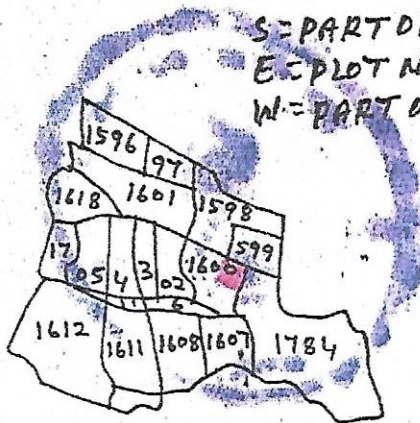 S=PART O
E=PLOT N
W=PART O
1596
97
1598
1618
1601
599
17
05
4
3
02
1600
1
6
1612
1611
1608
1607
1784